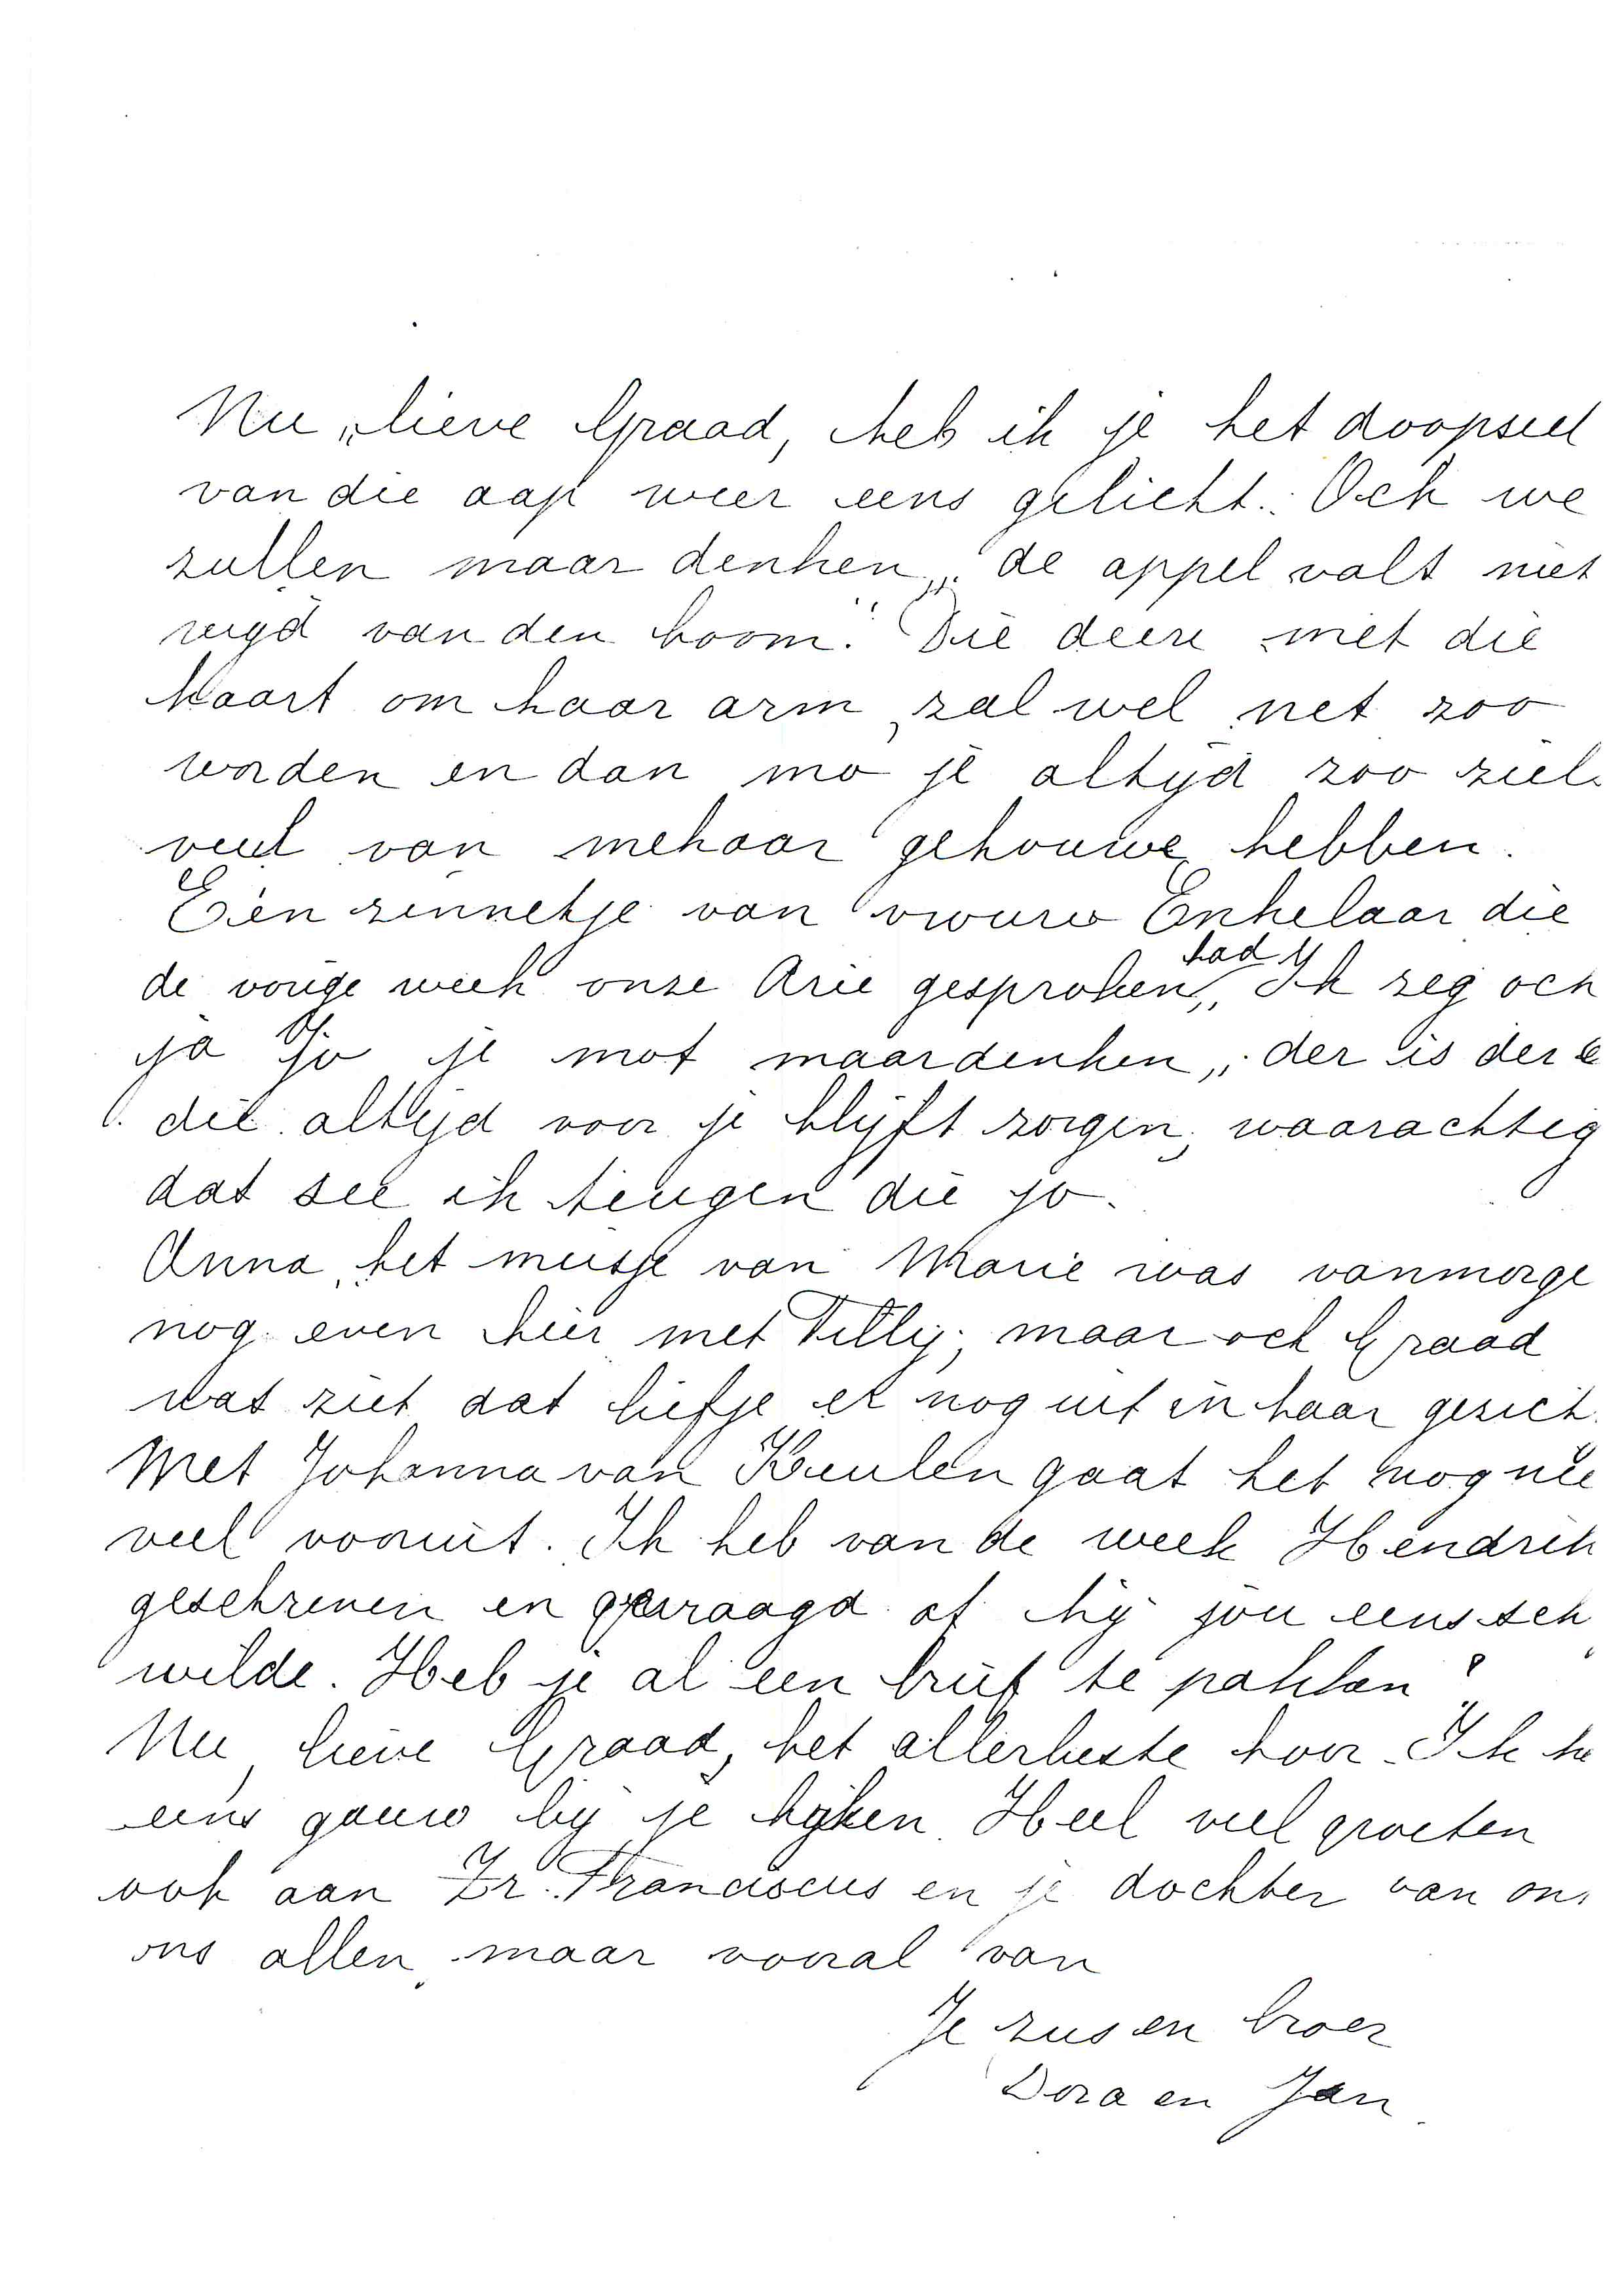 Nu, lieve Graad, heb ik je het doopseel
van die aap weer eens gelicht. Och we
zullen maar denken „de appel valt niet
verijd van den boom." Die deern met die
Kaart om haar arm, zal wel net zoo
worden en dan mo je altijd zoo ziels
veul van mekaar gehouwe hebben.
Eén zinnetje van vrouw Enkelaar die
de vorige week onze Arie gesproken had „Ik zeg och
ja Jo je mot maar denken, „der is der e
die altijd voor je blijft zorgen, waarachtig
dat see ik teugen die Jo.
Anna, het meisje van Marie was vanmorge
nog even hier met Tilly, maar och Graad
wat ziet dat liefje er nog uit in haar gezich
Met Johanna van Keulen gaat het nog nie
veel vooruit. Ik heb van de week Hendrik
geschreven en gevraagd of hij jou eens sch
wilde. Heb je al een brief te pakken?
Nu lieve Graad, het allerbeste hoor. Ik k
eens gauw bij je kijken. Heel veel groeten
ook aan Zr. Franciscus en je dochter van ons
ons allen, maar vooral van
Je zus en broer
Dora en Jan